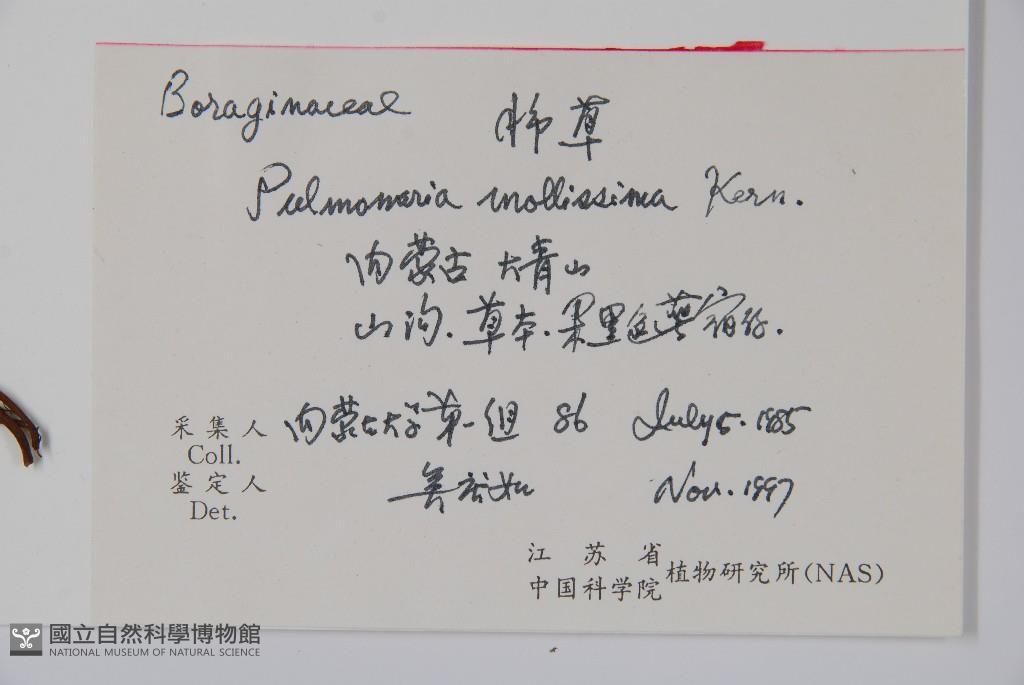 Boraginaceae
肺草
Pulmonaria mollissima Kern.
内蒙古 大青山
山沟. 草本. 果黑色 萼宿存.
采集人 内蒙古大学第一组 86 July 5. 1985
Coll.
鉴定人 Nov. 1997
Det.
江苏省
中国科学院 植物研究所(NAS)
國立自然科學博物館
NATIONAL MUSEUM OF NATURAL SCIENCE